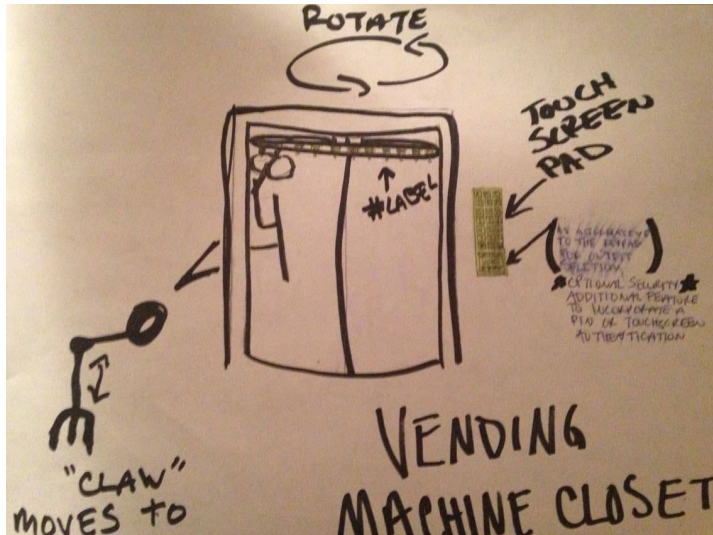 ROTATE
TOUCH
SCREEN
PAD
#LABEL
TO THE KEYPAD
FOR OUTFIT
OPTIONAL SECURITY
ADDITIONAL FEATURE
TO INCORPORATE A
PIN OR TOUCHSCREEN
AUTHENTICATION
"CLAW"
MOVES TO
VENDING
MACHINE CLOSET